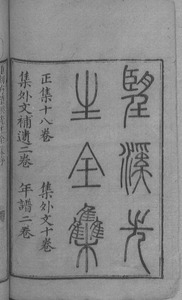 望溪先
生全集
正集十八卷
集外文十卷
集外文補遺二卷
年譜二卷